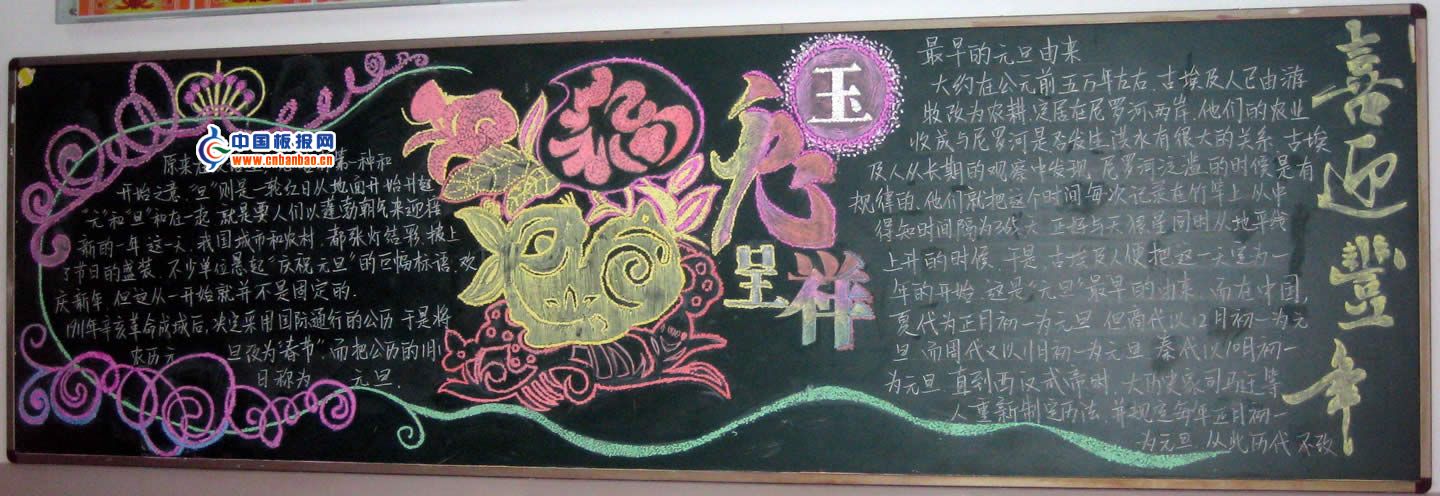 中国板报网
www.cnbanbao.cn
原来
第一种和
开始之意."旦"则是一轮红日从地面开始升起
"元"和"旦"和在一起 就是要人们以蓬勃朝气来迎接
新的一年 这一天,我国城市和农村 都张灯结彩,披上
了节日的盛装, 不少单位悬起"庆祝元旦"的巨幅标语,欢
庆新年. 但这从一开始就并不是固定的.
1911年辛亥革命成城后,决定采用国际通行的公历 于是将
农历元 旦改为"春节",而把公历的1月1
日称为 元旦.
玉
兔
呈
祥
最早的元旦由来
大约在公元前五万年左右,古埃及人已由游
牧改为农耕,定居在尼罗河两岸,他们的农业
收成与尼罗河是否发生洪水有很大的关系.古埃
及人从长期的观察中发现,尼罗河泛滥的时候是有
规律的,他们就把这个时间每次记录在竹竿上,从中
得知时间隔为365天 正好与天狼星同时从地平线
上升的时候,于是,古埃及人便把这一天定为一
年的开始.这是"元旦"最早的由来.而在中国,
夏代为正月初一为元旦 但商代以12月初一为元
旦,而周代又以11月初一为元旦 秦代以10月初一
为元旦 直到西汉武帝时,大历史家司马迁等
人重新制定历法,并规定每年正月初一
为元旦,从此历代不改
喜迎豐年